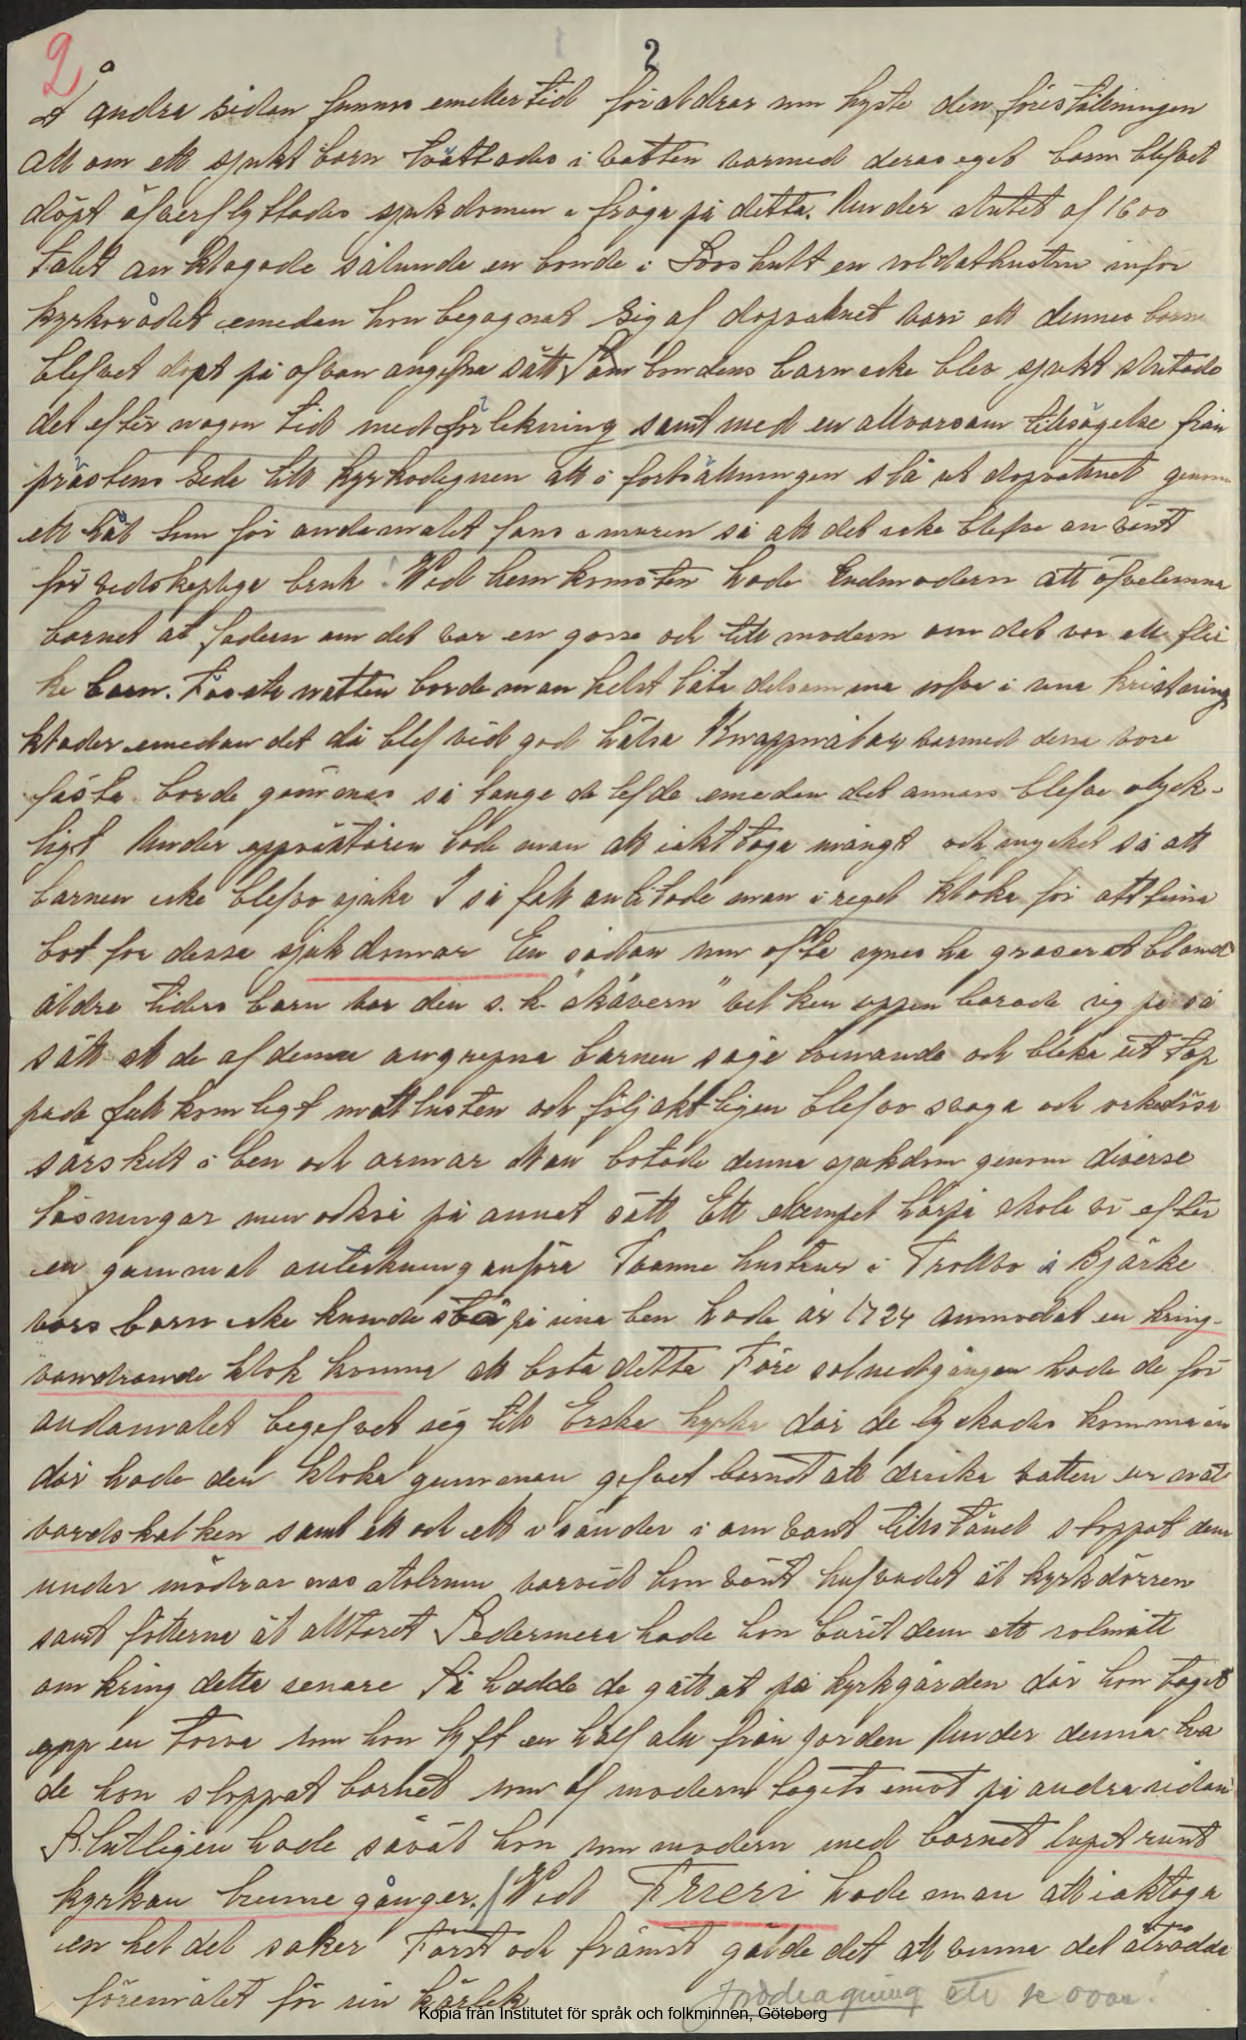 2
2
Å andra sidan funnos emellertid föräldrar som hyste den föreställningen
att om ett sjukt barn tvättades i vatten varmed deras eget barn blefvet
döpt öfverflyttades sjukdomen i fråga på detta. Under slutet af 1600
talet anklagade sålunda en bonde i en soldathustru inför
kyrkorådet emedan hon begagnat sig af dopvatnet vari ett dennes barn
blefvet döpt på ofvan angifna sätt Som bondens barn icke blev sjukt slutade
det efter nogon tid med förlikning samt med en allvarsam tillsägelse från
prästens sida till kyrkodegnen att i fortsättningen slå ut dopvattnet genom
ett hål som för andamalet fans i muren så att det icke blefve anvënt
för vidskepliga bruk. Vid hemkomsten hade Gudmodern att öfvelemna
barnet åt fadern om det var en gosse och till modern om det var ett flic
ke barn. Första natten borde man helst låta densamma sofva i sina kristnings
klader emedan det då blef vid god hälsa Knappnålar varmed dessa vore
fästa borde gömmas så lange de lefde emedan det annars blefve olyck-
ligt Under uppväxtåren hade man att iakttaga mångt och mycket så att
barnen icke blefvo sjuka I så fall anlitade man i regel kloka för att finna
bot for dessa sjukdommar En sådan som ofta synes ha graserat bland
äldre tiders barn var den s. k. "skåvern" vilken uppenbarade sig på så
sätt at de af denna angrepna barnen såge tvinande och bleka ut tap
pade fullkomligt matlusten och följaktligen blefvo svaga och orkeslösa
särskilt i ben och armar Man botade denna sjukdom genom diverse
läsningar men också på annat sätt Ett exempel härpå skole vi efter
en gammal anteckning anföra Tvanne hustrur i Trollbo i Bjärke
vars barn icke kunde stå på sina ben hade år 1724 anmodat en kring-
vandrande klok kvinna att bota detta Före solnedgången hade de för
andamalet begefvet sig till Erska kyrka där de lyckades komma in
där hade den kloka gumman gifvet barnet att dricka vatten ur nat
vardskalken samt ett och ett i sänder i omvant tillstånd stoppat dem
under mödrarnas stolrum varvid hon vänt hufvudet åt kyrkdörren
samt fötterna åt alltaret Sedermera hade hon burit dem ett solmått
omkring detta senare Så hadde de gått ut på kyrkgården där hon taget
upp en torva som hon lyft en half aln från jorden Under denna ha
de hon stoppat barnet som af modern togets emot på andra sidan
Slutligen hade såväl hon som modern med barnet lupit runt
kyrkan trenne gånger. Vid Frieri hade man att iaktaga
en hel del saker Först och främst gälde det att vinna det åtrådda
föremålet för sin kärlek
etc se ovan!
Kopia från Institutet för språk och folkminnen, Göteborg